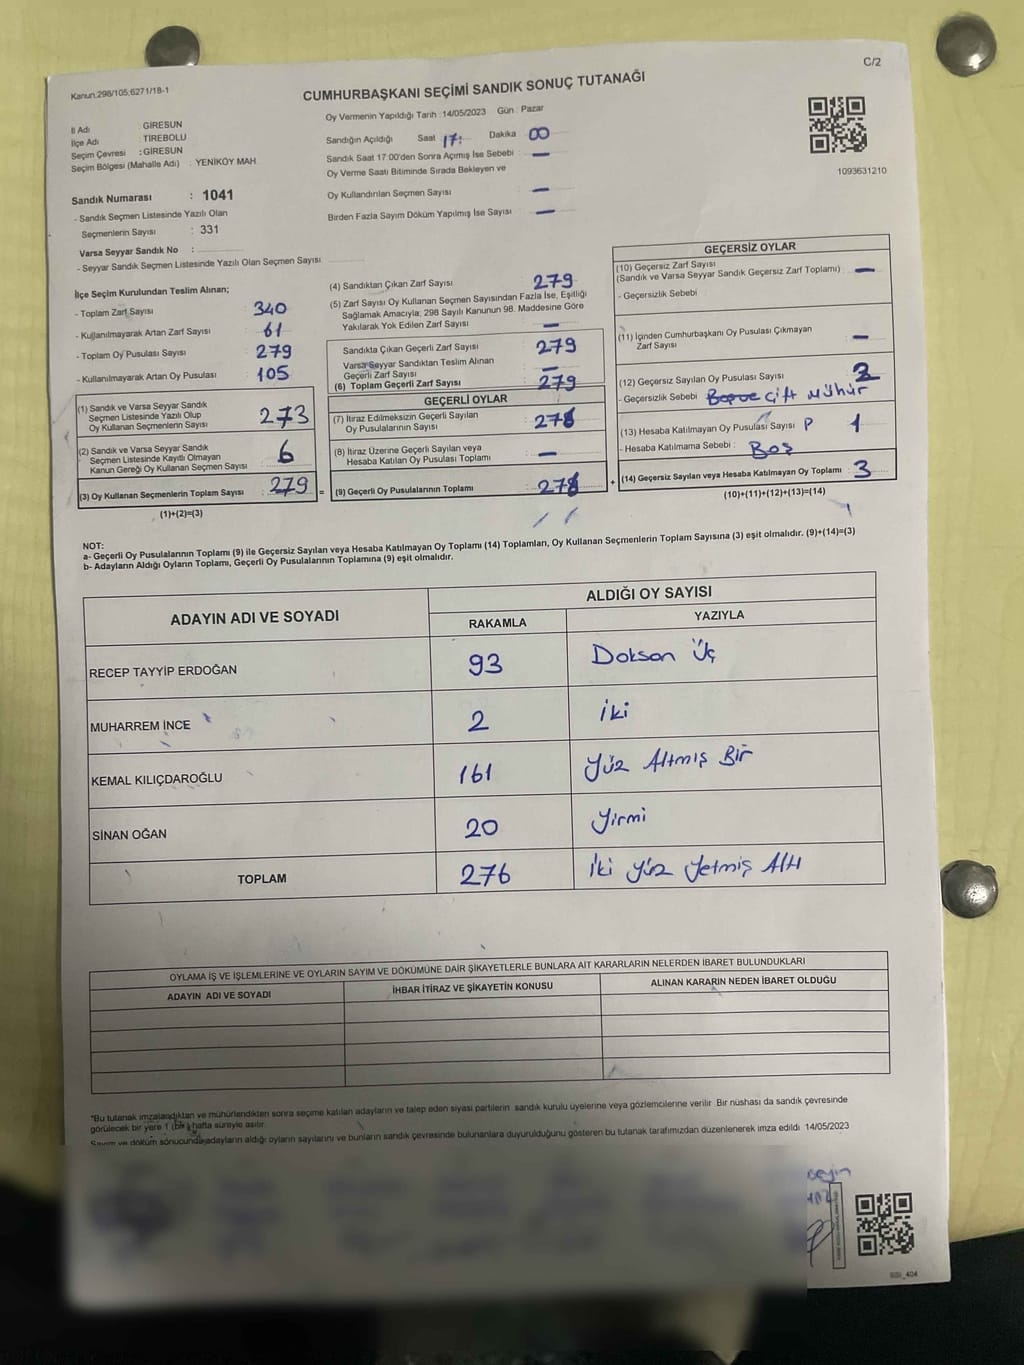 Kanun:298/105;6271/18-1
C/2
CUMHURBAŞKANI SEÇİMİ SANDIK SONUÇ TUTANAĞI
Oy Vermenin Yapıldığı Tarih :14/05/2023 Gün : Pazar
İl Adı : GİRESUN
İlçe Adı : TİREBOLU
Seçim Çevresi : GİRESUN
Seçim Bölgesi (Mahalle Adı) : YENİKÖY MAH
Sandık Numarası : 1041
- Sandık Seçmen Listesinde Yazılı Olan
Seçmenlerin Sayısı : 331
Varsa Seyyar Sandık No :
- Seyyar Sandık Seçmen Listesinde Yazılı Olan Seçmen Sayısı
Sandığın Açıldığı Saat 17: Dakika 00
Sandık Saat 17:00'den Sonra Açımış İse Sebebi : —
Oy Verme Saati Bitiminde Sırada Bekleyen ve
Oy Kullandırılan Seçmen Sayısı : —
Birden Fazla Sayım Döküm Yapılmış İse Sayısı : —
1093631210
İlçe Seçim Kurulundan Teslim Alınan;
- Toplam Zarf Sayısı 340
- Kullanılmayarak Artan Zarf Sayısı 61
- Toplam Oy Pusulası Sayısı 279
- Kullanılmayarak Artan Oy Pusulası 105
(1) Sandık ve Varsa Seyyar Sandık
Seçmen Listesinde Yazılı Olup
Oy Kullanan Seçmenlerin Sayısı : 273
(2) Sandık ve Varsa Seyyar Sandık
Seçmen Listesinde Kayıtlı Olmayan
Kanun Gereği Oy Kullanan Seçmen Sayısı : 6
(3) Oy Kullanan Seçmenlerin Toplam Sayısı : 279 =
(1)+(2)=(3)
(4) Sandıktan Çıkan Zarf Sayısı 279
(5) Zarf Sayısı Oy Kullanan Seçmen Sayısından Fazla İse, Eşitliği
Sağlamak Amacıyla; 298 Sayılı Kanunun 98. Maddesine Göre
Yakılarak Yok Edilen Zarf Sayısı : —
Sandıkta Çıkan Geçerli Zarf Sayısı : 279
Varsa Seyyar Sandıktan Teslim Alınan
Geçerli Zarf Sayısı : —
(6) Toplam Geçerli Zarf Sayısı : 279
GEÇERLİ OYLAR
(7) İtiraz Edilmeksizin Geçerli Sayılan
Oy Pusulalarının Sayısı :
(8) İtiraz Üzerine Geçerli Sayılan veya
Hesaba Katılan Oy Pusulası Toplamı : —
(9) Geçerli Oy Pusulalarının Toplamı : +
GEÇERSİZ OYLAR
(10) Geçersiz Zarf Sayısı
(Sandık ve Varsa Seyyar Sandık Geçersiz Zarf Toplamı) : —
- Geçersizlik Sebebi
(11) İçinden Cumhurbaşkanı Oy Pusulası Çıkmayan
Zarf Sayısı : —
(12) Geçersiz Sayılan Oy Pusulası Sayısı : 2
- Geçersizlik Sebebi : Çift Mühür
(13) Hesaba Katılmayan Oy Pusulası Sayısı : 1
- Hesaba Katılmama Sebebi : Boş
(14) Geçersiz Sayılan veya Hesaba Katılmayan Oy Toplamı : 3
(10)+(11)+(12)+(13)=(14)
NOT:
a- Geçerli Oy Pusulalarının Toplamı (9) ile Geçersiz Sayılan veya Hesaba Katılmayan Oy Toplamı (14) Toplamları, Oy Kullanan Seçmenlerin Toplam Sayısına (3) eşit olmalıdır. (9)+(14)=(3)
b- Adayların Aldığı Oyların Toplamı, Geçerli Oy Pusulalarının Toplamına (9) eşit olmalıdır.
ADAYIN ADI VE SOYADI ALDIĞI OY SAYISI
RAKAMLA YAZIYLA
RECEP TAYYİP ERDOĞAN 93 Doksan Üç
MUHARREM İNCE 2 İki
KEMAL KILIÇDAROĞLU 161 Yüz Altmış Bir
SİNAN OĞAN 20 Yirmi
TOPLAM 276 İki Yüz Yetmiş Altı
OYLAMA İŞ VE İŞLEMLERİNE VE OYLARIN SAYIM VE DÖKÜMÜNE DAİR ŞİKAYETLERLE BUNLARA AİT KARARLARIN NELERDEN İBARET BULUNDUKLARI
ADAYIN ADI VE SOYADI İHBAR İTİRAZ VE ŞİKAYETİN KONUSU ALINAN KARARIN NEDEN İBARET OLDUĞU
*Bu tutanak imzalandıktan ve mühürlendikten sonra seçime katılan adayların ve talep eden siyasi partilerin sandık kurulu üyelerine veya gözlemcilerine verilir. Bir nüshası da sandık çevresinde
görülecek bir yere 1 (bir) hafta süreyle asılır.
Sayım ve döküm sonucunda adayların aldığı oyların sayılarını ve bunların sandık çevresinde bulunanlara duyurulduğunu gösteren bu tutanak tarafımızdan düzenlenerek imza edildi. 14/05/2023